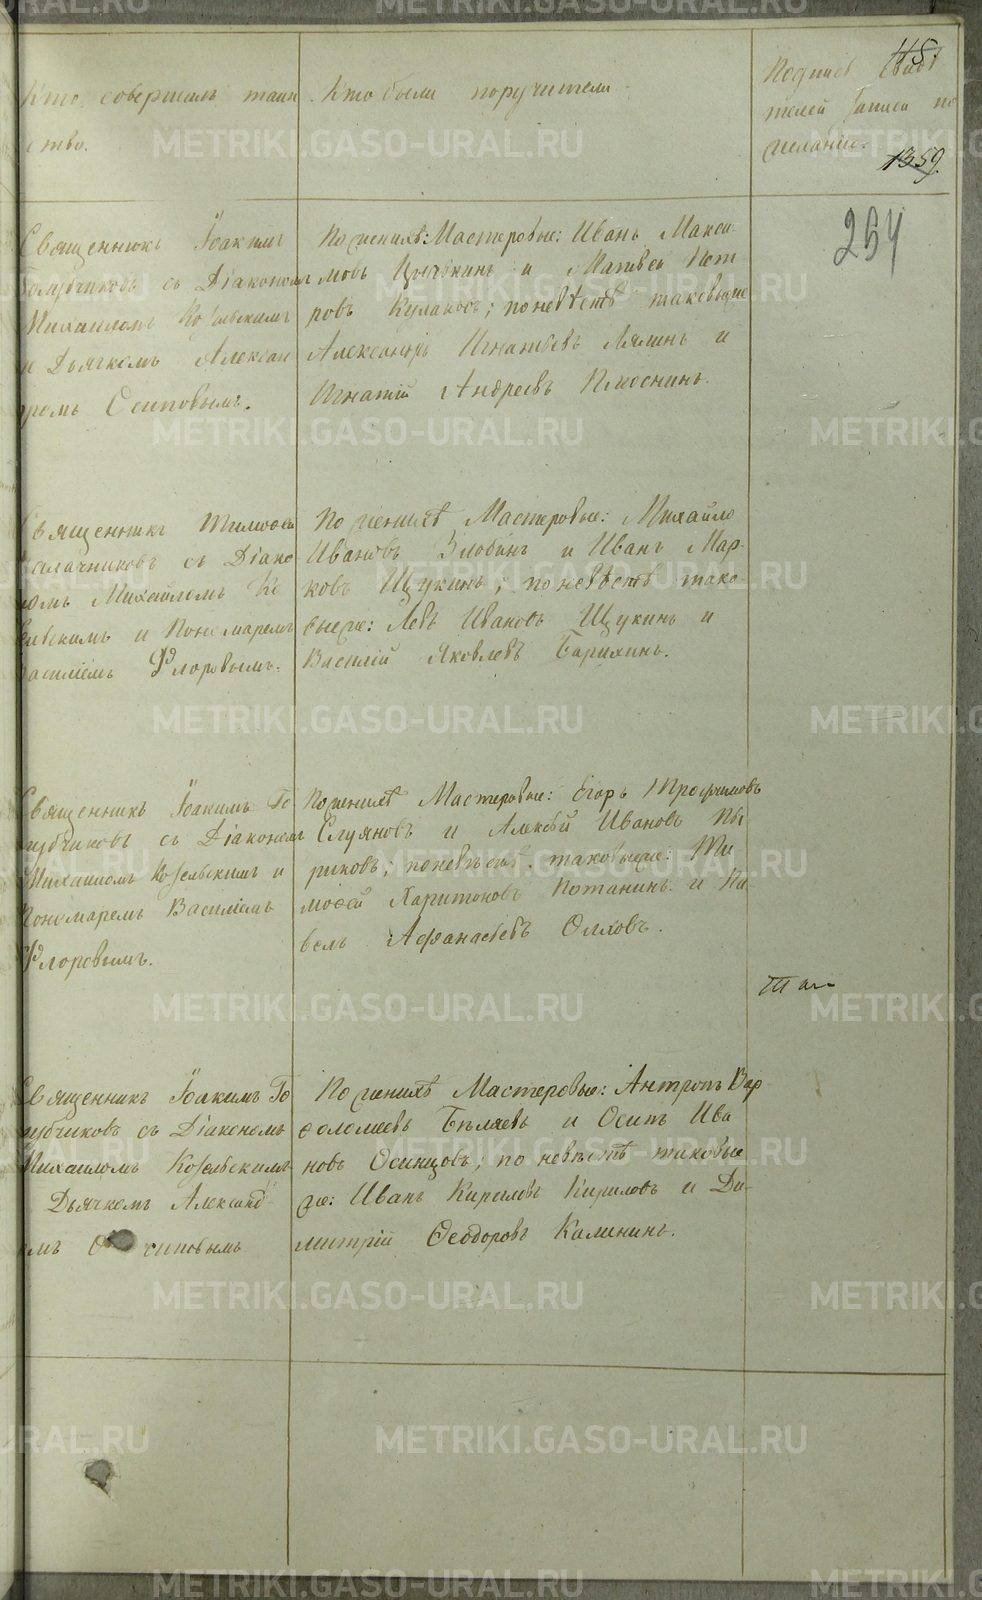 115.
Кто совершалъ таин
ство.
Кто были поручители
Подпись свидѣ
телей записи по
желанію.
1359.
254
Священникъ Іоакимъ
Голубчиковъ съ Діакономъ
Михаиломъ Козельскимъ
и Дьячкомъ Алексан
дромъ Осиповымъ.
По женихѣ: Мастеровые: Иванъ Макси
мовъ и Матвѣй Пет
ровъ Кулаковъ; по невѣстѣ таковыеже
Александръ Игнатьевъ Лялинъ и
Игнатій Андреевъ Плюснинъ.
Священникъ Тимофей
Калачниковъ съ Діако
номъ Михаиломъ Ко
зельскимъ и Пономаремъ
Василіемъ Флоровымъ.
По женихѣ Мастеровые: Михайло
Ивановъ Злобинъ и Иванъ Мар
ковъ Щукинъ; по невѣстѣ тако
выеже: Левъ Ивановъ Щукинъ и
Василій Яковлевъ Барихинъ.
Священникъ Іоакимъ Го
лубчиковъ съ Діакономъ
Михаиломъ Козельскимъ и
Пономаремъ Василіемъ
Флоровымъ.
По женихѣ Мастеровые: Егоръ Трофимовъ
и Алексѣй Ивановъ Пы
риковъ; по невѣстѣ таковыеже: Ти
мофей Харитоновъ Потанинъ и Па
велъ Афанасьевъ
Священникъ Іоакимъ Го
лубчиковъ съ Діакономъ
Михаиломъ Козельскимъ
Дьячкомъ Александ
омъ Осиповымъ
По женихѣ Мастеровые: Антропъ Вар
фоломеевъ Бѣляевъ и Осипъ Ива
новъ Осинцовъ; по невѣстѣ таковые
же: Иванъ Кириловъ Кириловъ и Ди-
митрій Феодоровъ Калининъ.
METRIKI.GASO-URAL.RU